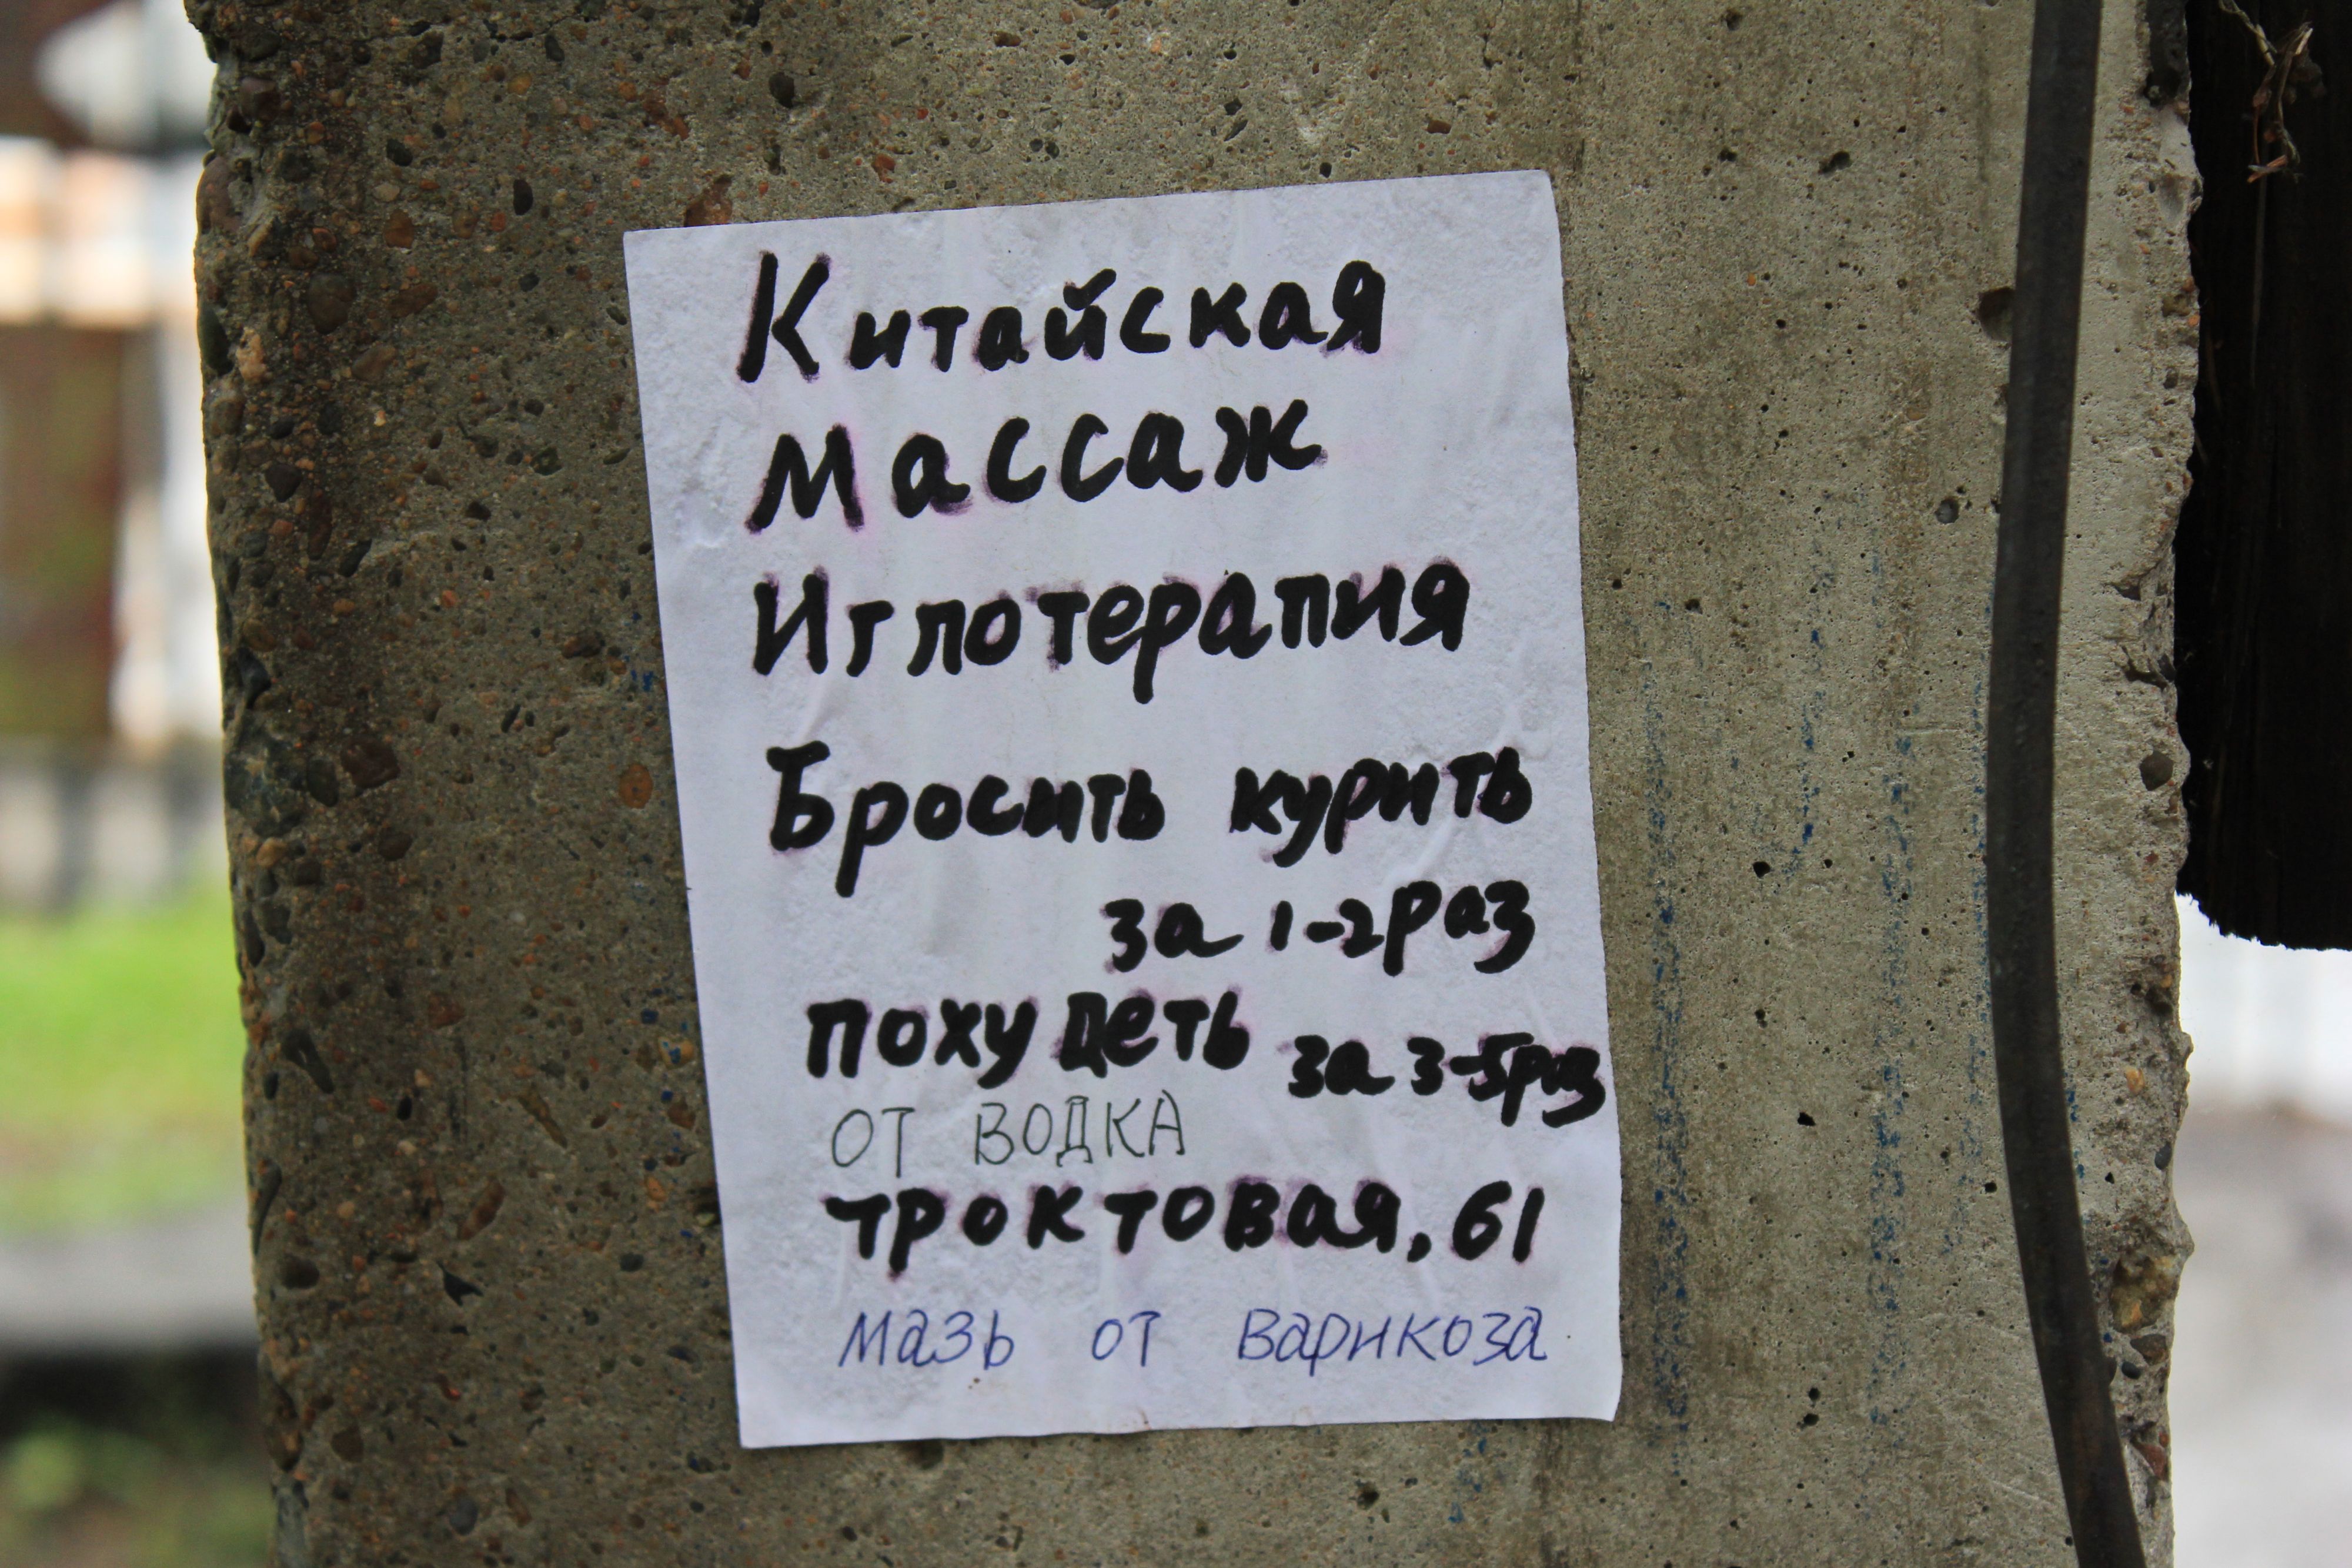 Китайская
массаж
Иглотерапия
Бросить курить
за 1-2 раз
похудеть за 3-5 раз
от водка
троктовая, 61
мазь от варикоза